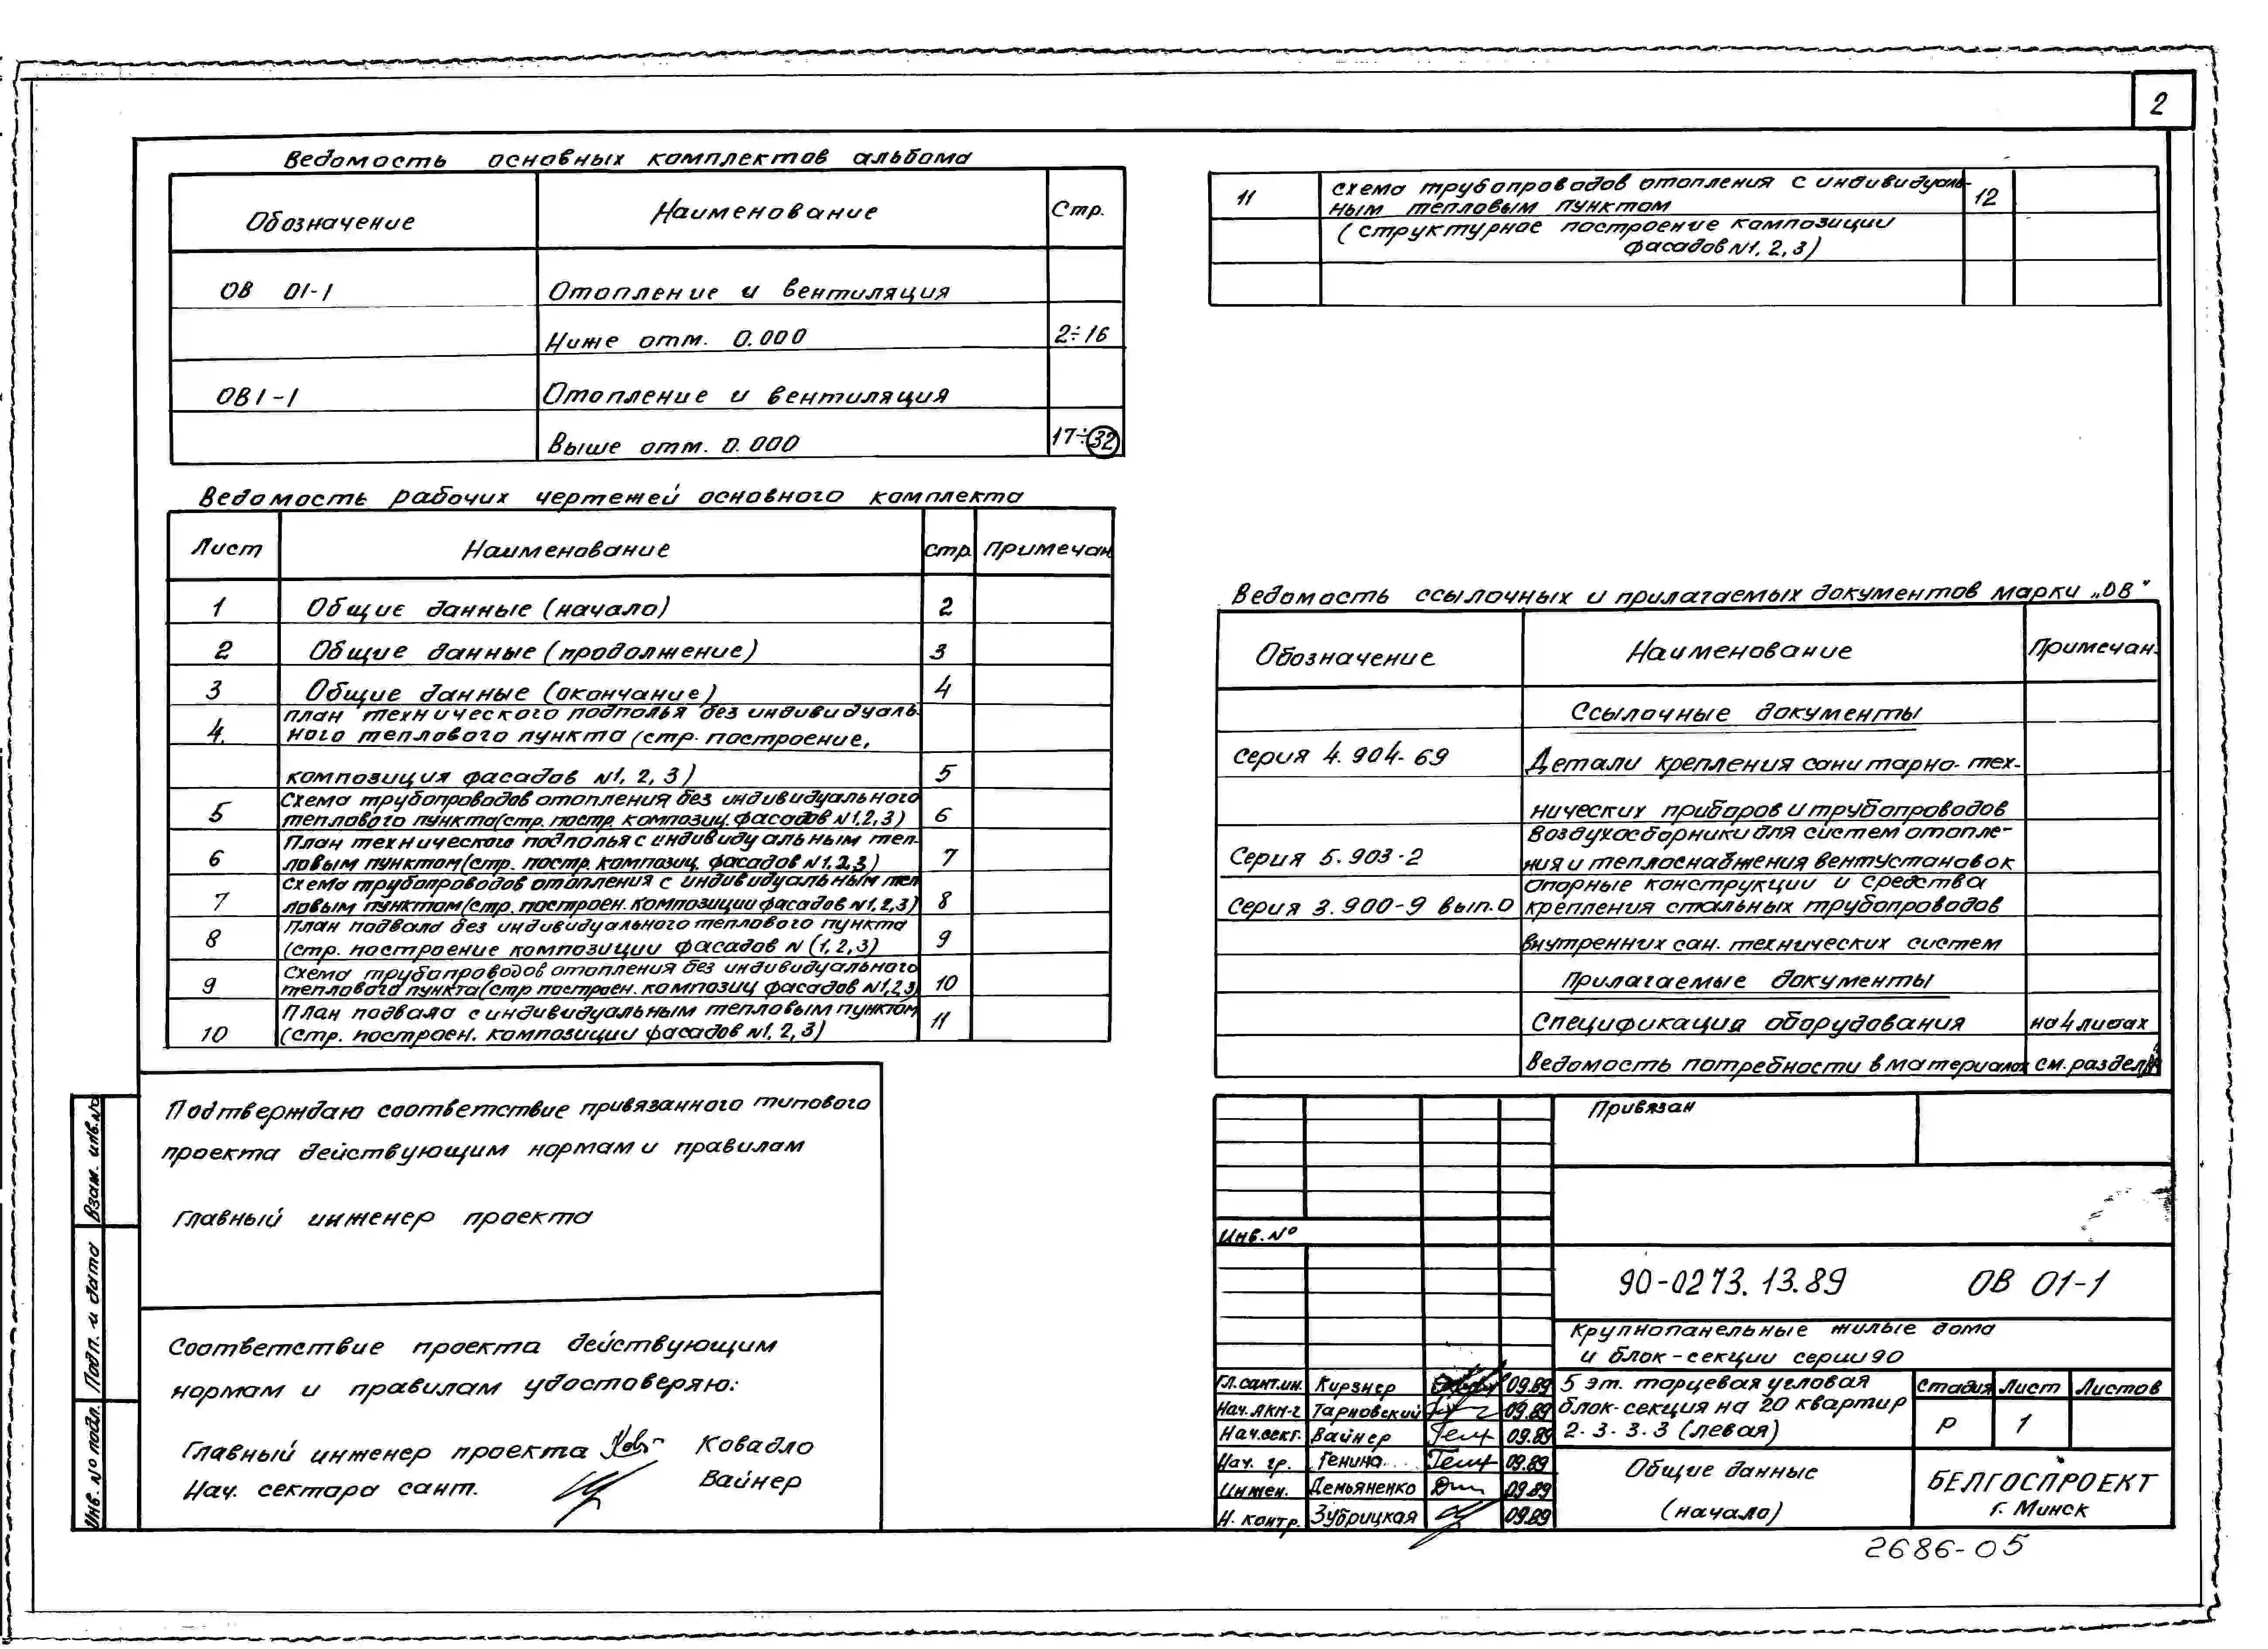 2
Ведомость основных комплектов альбома
Обозначение Наименование Стр.
ОВ 01-1 Отопление и вентиляция
Ниже отм. 0.000 2÷16
ОВ1-1 Отопление и вентиляция
Выше отм. 0.000 17÷32
Ведомость рабочих чертежей основного комплекта
Лист Наименование стр. Примечан
1 Общие данные (начало) 2
2 Общие данные (продолжение) 3
3 Общие данные (окончание) 4
4. план технического подполья без индивидуаль-
ного теплового пункта (стр. построение,
композиция фасадов №1, 2, 3) 5
5 Схема трубопроводов отопления без индивидуального
теплового пункта(стр. постр. композиц. фасадов №1,2,3) 6
6 План технического подполья с индивидуальным теп-
ловым пунктом(стр. постр. композиц. фасадов №1.2,3) 7
7 схема трубопроводов отопления с индивидуальным теп
ловым пунктом(стр. построен. композиции фасадов №1,2,3) 8
8 План подвала без индивидуального теплового пункта
(стр. построение композиции фасадов N (1, 2, 3) 9
9 Схема трубопроводов отопления без индивидуального
теплового пункта(стр построен. композиц фасадов №1,2,3) 10
10 План подвала с индивидуальным тепловым пунктом
(стр. построен. композиции фасадов №1, 2, 3) 11
11 схема трубопроводов отопления с индивидуаль-
ным тепловым пунктом 12
(структурное построение композиции
фасадов №1, 2, 3)
Ведомость ссылочных и прилагаемых документов марки „ОВ"
Обозначение Наименование Примечан.
Ссылочные документы
Серия 4.904-69 Детали крепления санитарно-тех-
нических приборов и трубопроводов
Серия 5.903-2 Воздухосборники для систем отопле-
ния и теплоснабжения вентустановок
Серия 3.900-9 вып.0 Опорные конструкции и средства
крепления стальных трубопроводов
внутренних сан. технических систем
Прилагаемые документы
Спецификация оборудования на 4 листах
Ведомость потребности в материалах см. раздел
Подтверждаю соответствие привязанного типового
проекта действующим нормам и правилам
Главный инженер проекта
Соответствие проекта действующим
нормам и правилам удостоверяю:
Главный инженер проекта Ковадло
Нач. сектора сант. Вайнер
Взам. инв.№
Подп. и дата
Инв. № подл.
Привязан
Инв. №
90-0273.13.89 ОВ 01-1
Крупнопанельные жилые дома
и блок-секции серии 90
Гл.сант.ин. Кирзнер 09.89
Нач.АКМ-2 Тарновский 09.89
Нач.сект. Вайнер 09.89
Нач. гр. Генина 09.89
Инжен. Демьяненко 09.89
Н. контр. Зубрицкая 09.89
5 эт. торцевая угловая
блок-секция на 20 квартир
2. 3. 3. 3 (левая)
Стадия Лист Листов
Р 1
Общие данные
(начало)
БЕЛГОСПРОЕКТ
г. Минск
2686-05